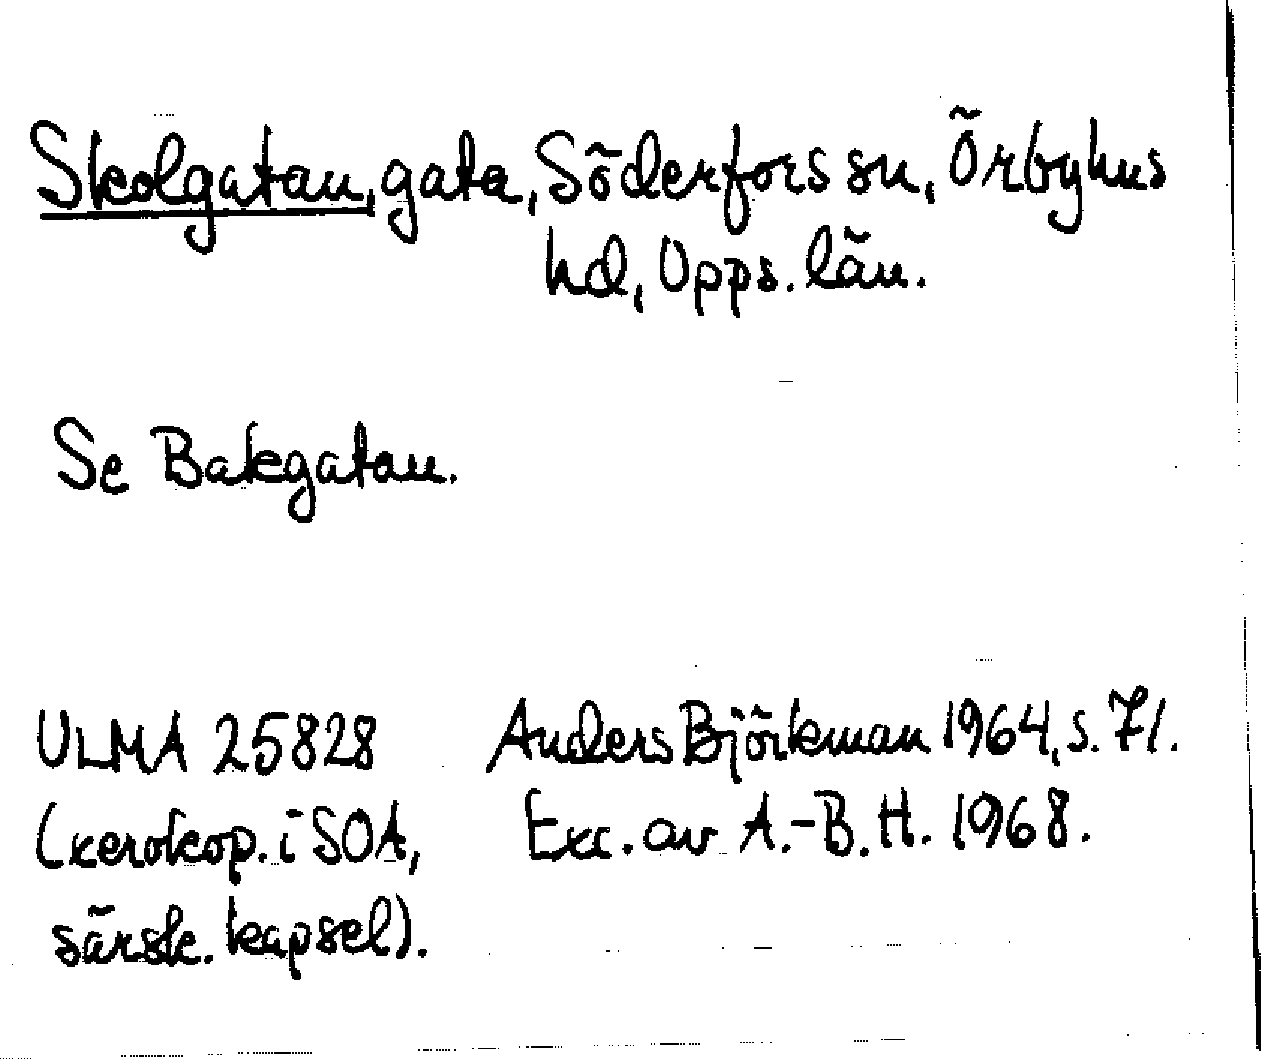 Skolgatan, gata, Söderfors sn, Örbyhus
hd, Upps. län.
Se Bakgatan.
ULMA 25828
(xerokop. i SOA,
särsk. kapsel).
Anders Björkman 1964, s. 71.
Exc. av A.-B. H. 1968.